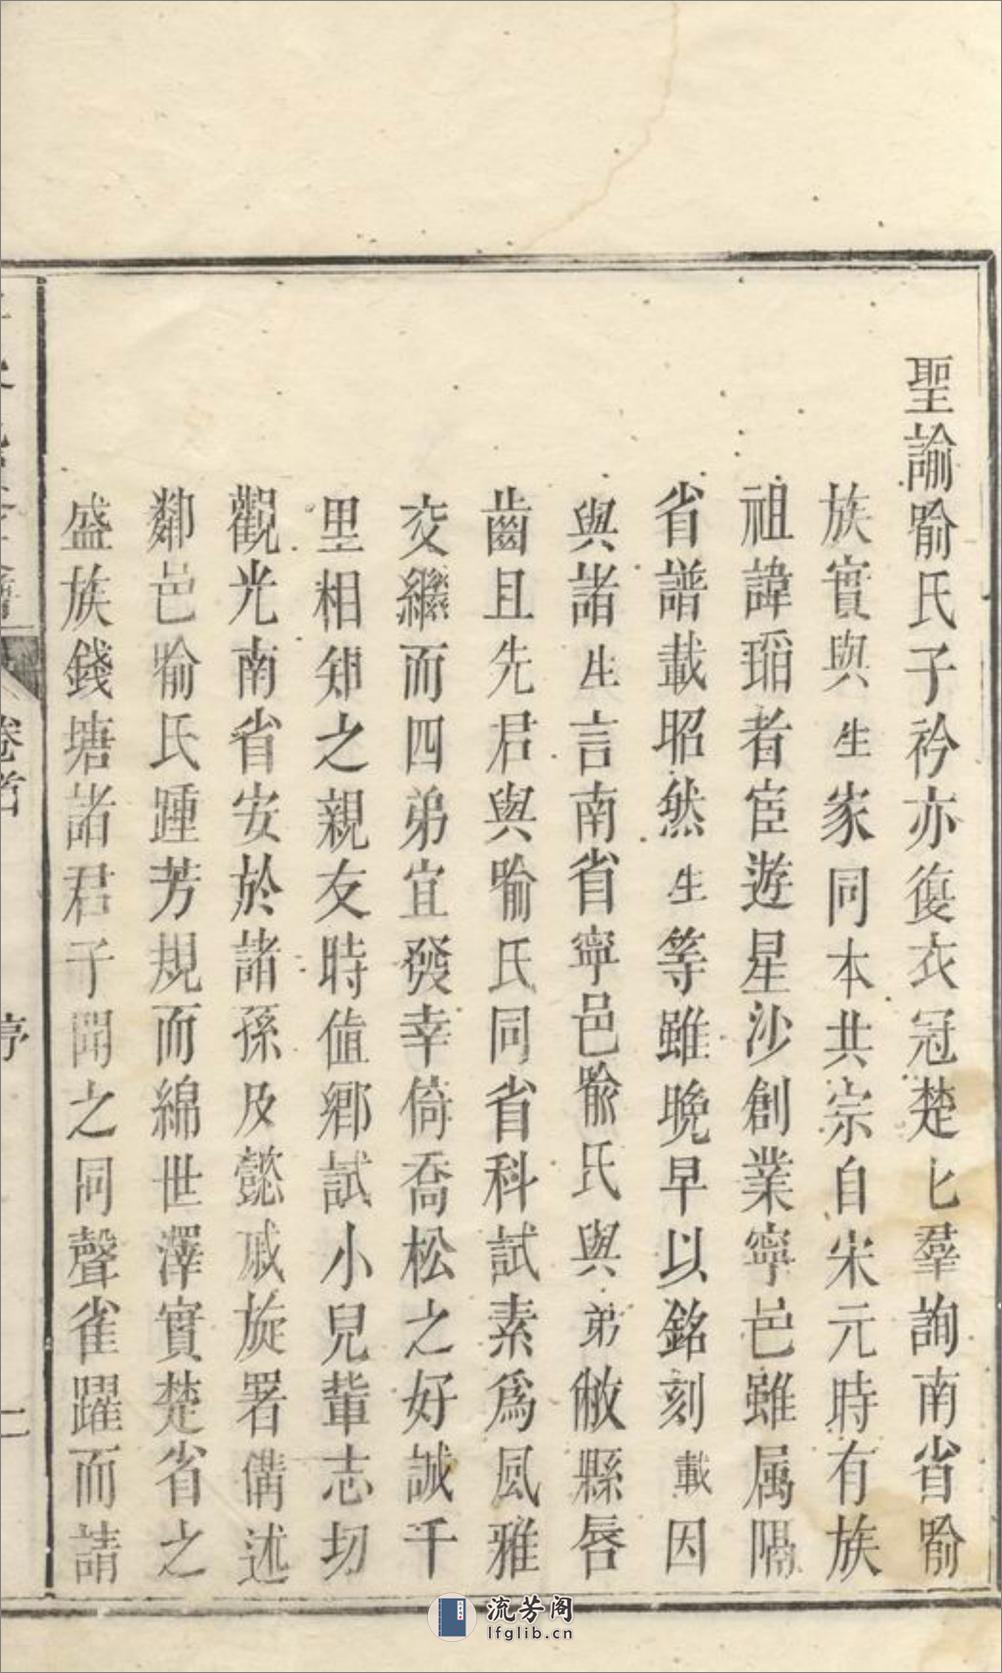 聖諭喻氏子衿亦復衣冠楚匕羣詢南省喻
族實與生家同本共宗自宋元時有族
祖諱瑫者宦遊星沙創業寧邑雖属隔
省譜載昭然生等雖晚早以銘刻載因
與諸生言南省寧邑喻氏與弟敝縣唇
齒且先君與喻氏同省科試素爲風雅
交繼而四弟宜發幸倚喬松之好誠千
里相知之親友時值鄉試小兒輩志切
觀光南省安於諸孫及懿戚旋署備述
鄰邑喻氏踵芳規而綿世澤實楚省之
盛族錢塘諸君子聞之同聲雀躍而請
卷首
序
二
流芳阁
lfglib.cn